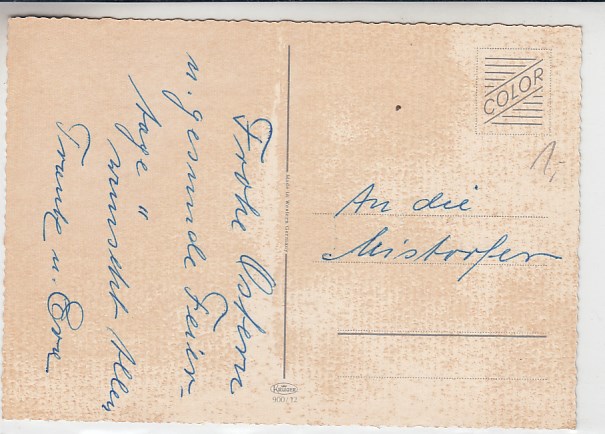 Frohe Ostern
u. gesunde Feier-
tage"
wünscht Allen
u. Eva
Made in Western Germany
An die
Mistorfer
COLOR
1,-
Krüger
900/12